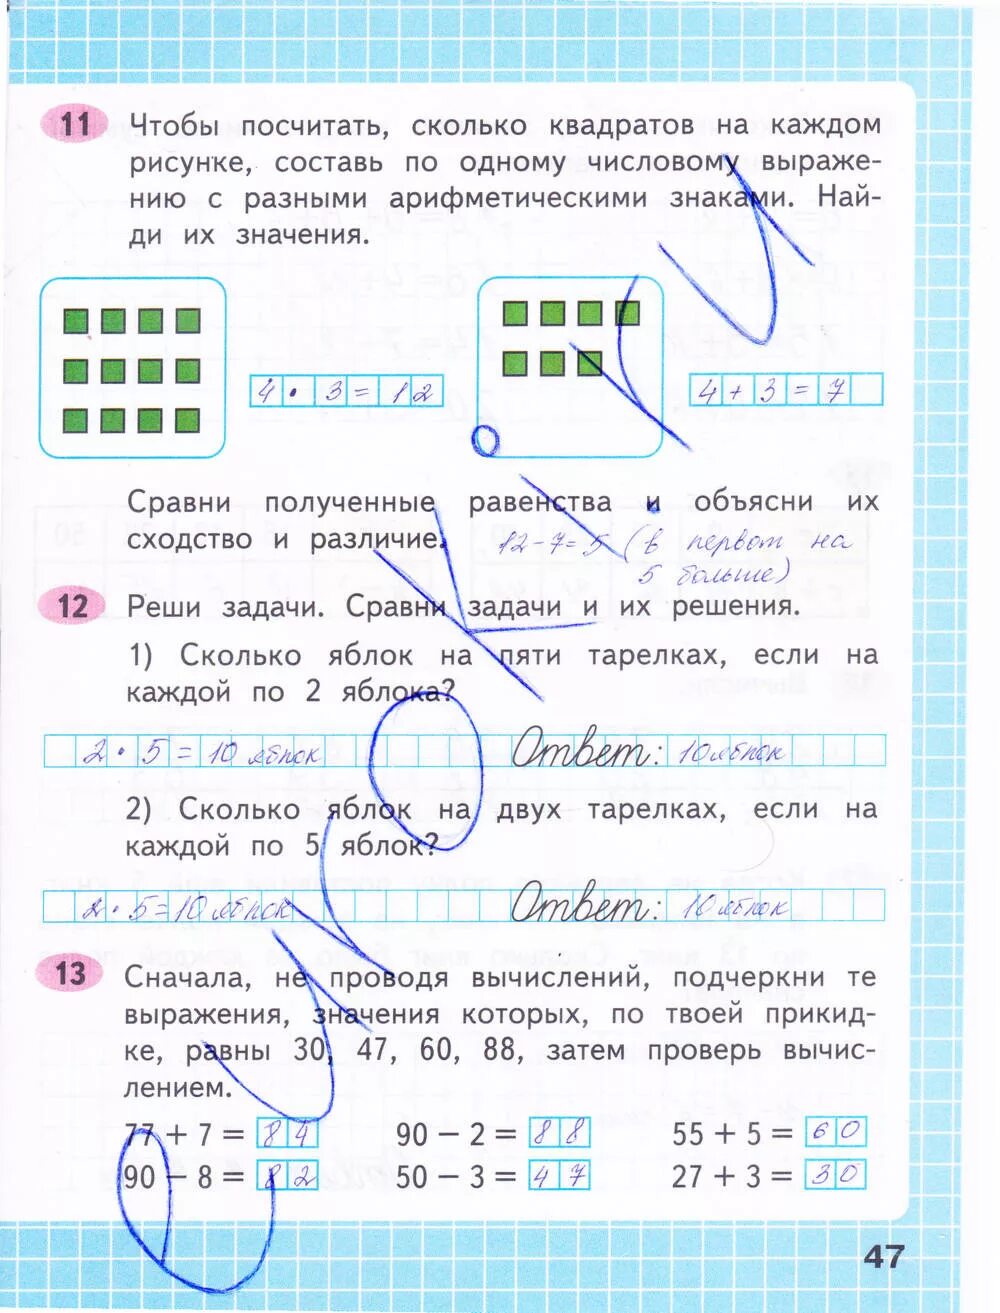 11 Чтобы посчитать, сколько квадратов на каждом
рисунке, составь по одному числовому выраже-
нию с разными арифметическими знаками. Най-
ди их значения.
4 · 3 = 12
4 + 3 = 7
Сравни полученные равенства и объясни их
сходство и различие. 12-7=5 (в первом на
5 больше)
12 Реши задачи. Сравни задачи и их решения.
1) Сколько яблок на пяти тарелках, если на
каждой по 2 яблока?
2 · 5 = 10 яблок Ответ: 10 яблок
2) Сколько яблок на двух тарелках, если на
каждой по 5 яблок?
2 · 5 = 10 яблок Ответ: 10 яблок
13 Сначала, не проводя вычислений, подчеркни те
выражения, значения которых, по твоей прикид-
ке, равны 30, 47, 60, 88, затем проверь вычис-
лением.
77 + 7 = 84 90 − 2 = 88 55 + 5 = 60
90 − 8 = 82 50 − 3 = 47 27 + 3 = 30
47